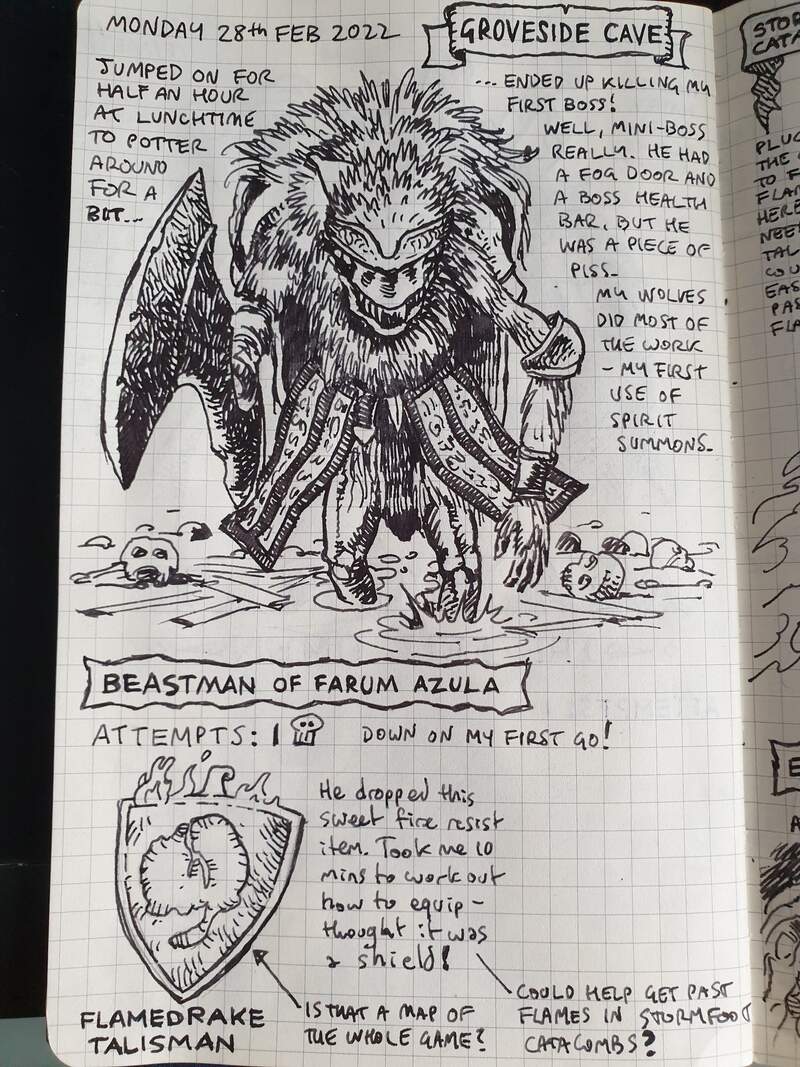 MONDAY 28th FEB 2022
GROVESIDE CAVE
JUMPED ON FOR
HALF AN HOUR
AT LUNCHTIME
TO POTTER
AROUND
FOR A
BIT...
... ENDED UP KILLING MY
FIRST BOSS!
WELL, MINI-BOSS
REALLY. HE HAD
A FOG DOOR AND
A BOSS HEALTH
BAR, BUT HE
WAS A PIECE OF
PISS.
MY WOLVES
DID MOST OF
THE WORK
- MY FIRST
USE OF
SPIRIT
SUMMONS.
BEASTMAN OF FARUM AZULA
ATTEMPTS: 1
DOWN ON MY FIRST GO!
He dropped this
sweet fire resist
item. Took me 10
mins to work out
how to equip -
thought it was
a shield!
FLAMEDRAKE
TALISMAN
IS THAT A MAP OF
THE WHOLE GAME?
COULD HELP GET PAST
FLAMES IN STORMFOOT
CATACOMBS?
PLUG
THE
TO F
FLAM
HERE
NEE
TAL
COU
EAS
PAS
FLA